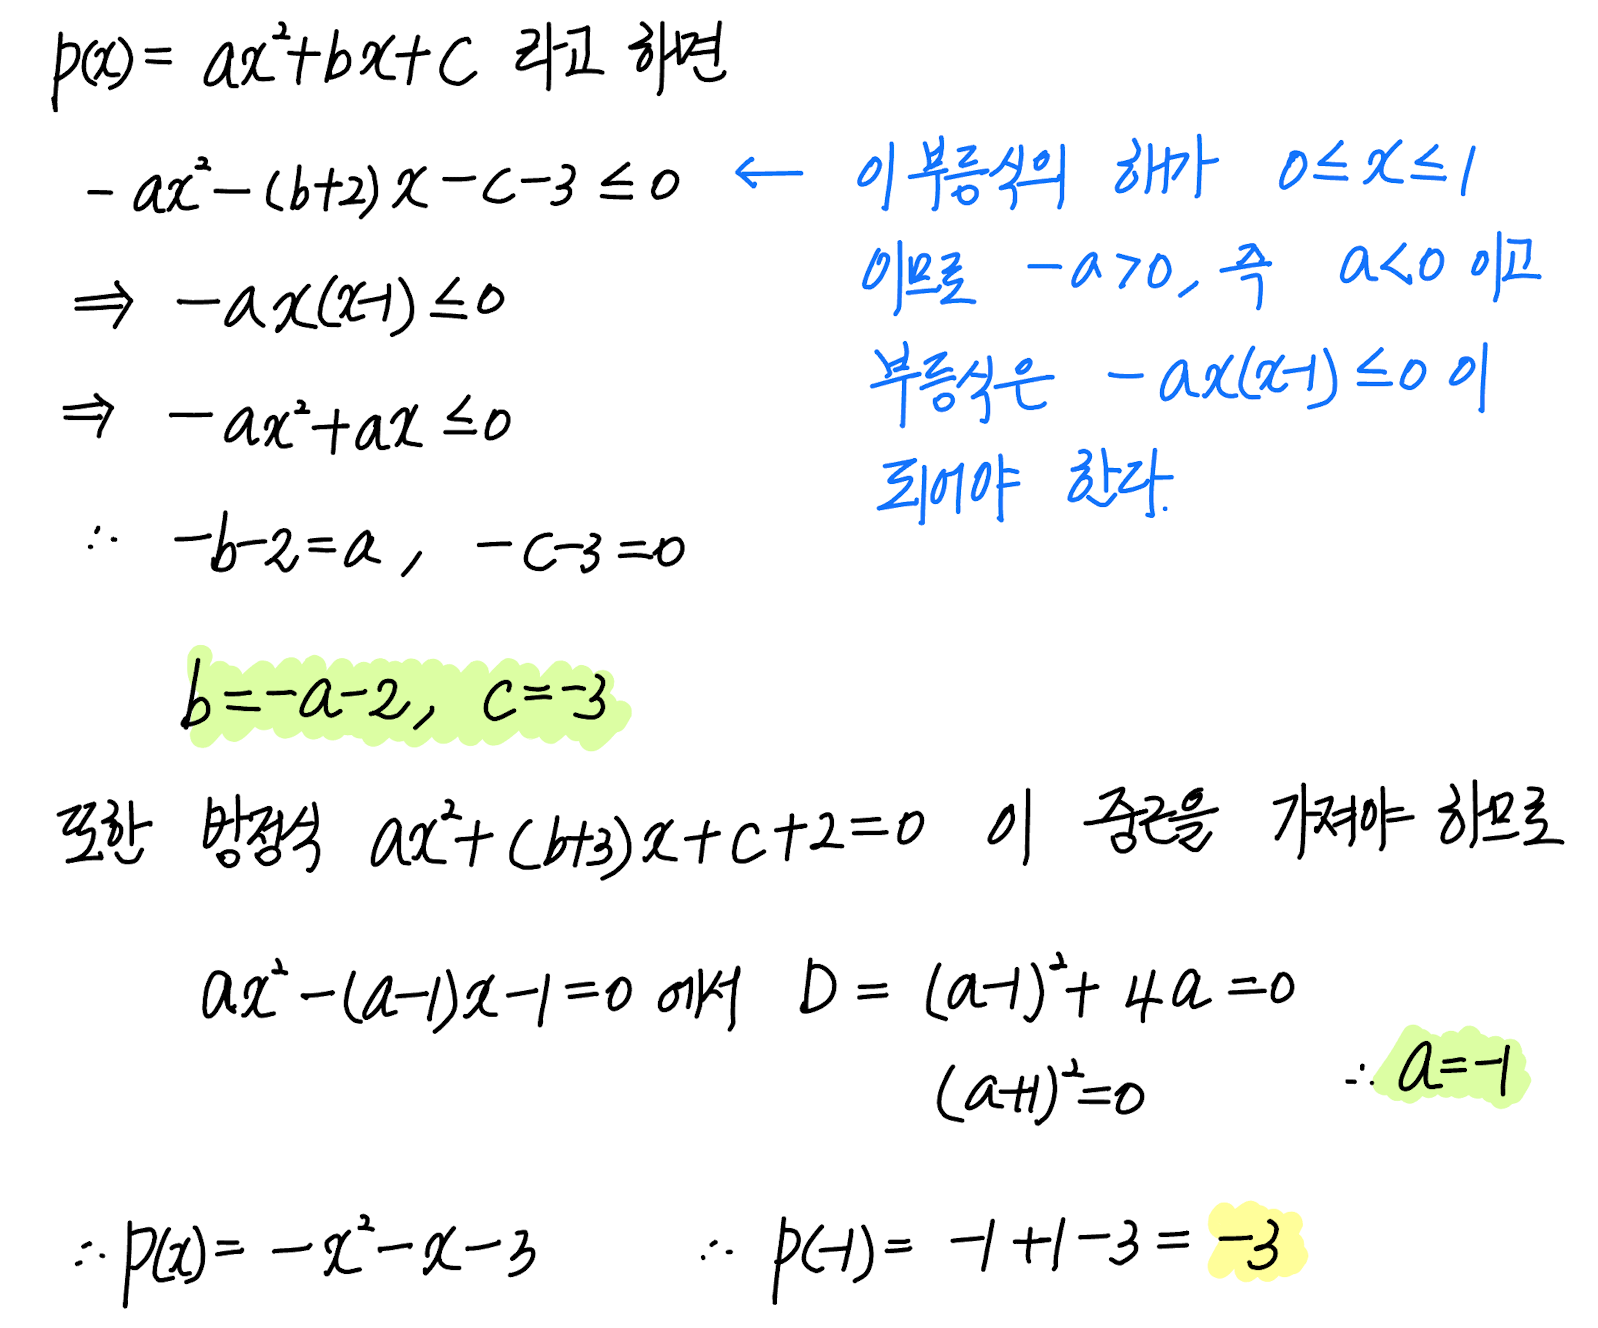 p(x) = ax²+bx+c 라고 하면
-ax²-(b+2)x-c-3 ≤ 0 ← 이 부등식의 해가 0≤x≤1
이므로 -a>0, 즉 a<0 이고
⇒ -ax(x-1) ≤ 0
부등식은 -ax(x-1) ≤ 0 이
⇒ -ax²+ax ≤ 0
되어야 한다.
∴ -b-2=a, -c-3=0
b=-a-2, c=-3
또한 방정식 ax²+(b+3)x+c+2=0 이 중근을 가져야 하므로
ax²-(a-1)x-1=0 에서 D = (a-1)²+4a=0
(a+1)²=0 ∴ a=-1
∴ p(x) = -x²-x-3 ∴ p(-1) = -1+1-3 = -3